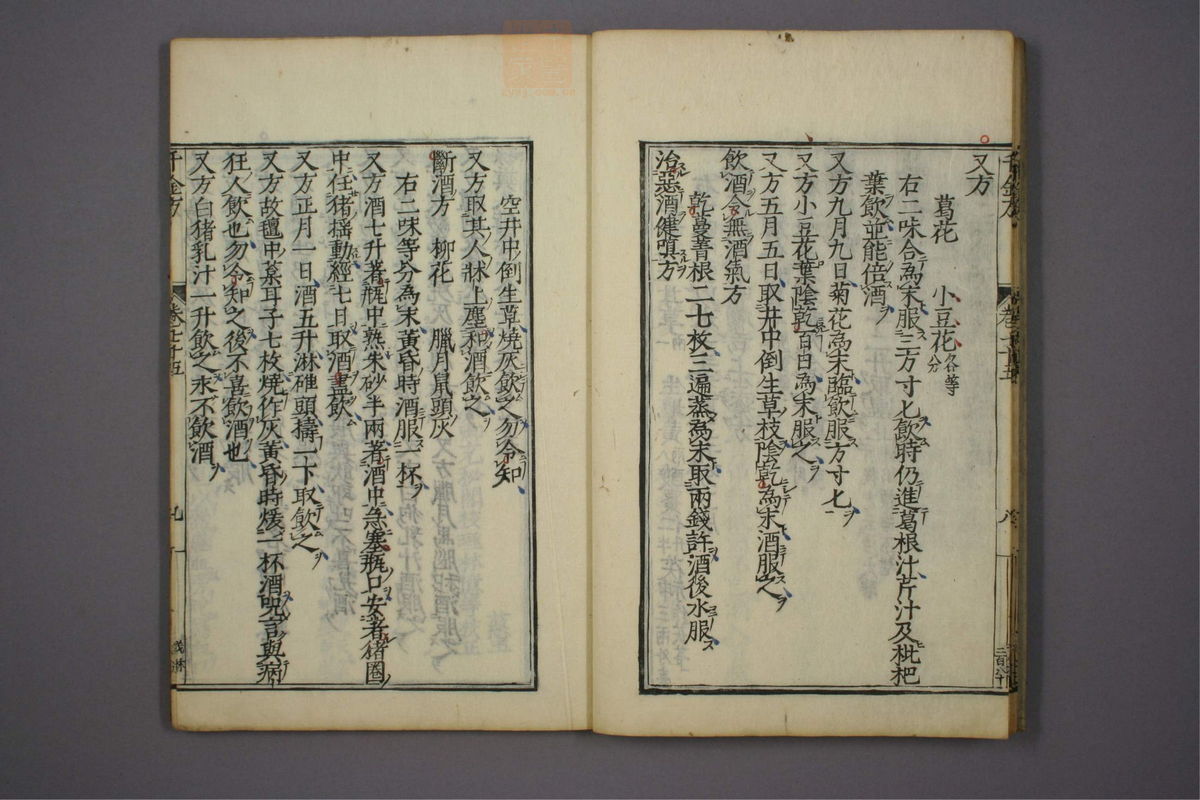 又方
葛花　小豆花各等分
右二味合為末服三方寸匕飲時仍進葛根汁芹汁及枇杷
葉飲並能倍酒
又方九月九日菊花為末臨飲服方寸匕
又方小豆花葉陰乾百日為末服之
又方五月五日取井中倒生草枝陰乾為末酒服之
飲酒令無酒氣方
乾蔓菁根二七枚三遍蒸為末取兩錢許酒後水服
治惡酒健嗔方
空井中倒生草燒灰飲之勿令知
又方取其人牀上塵和酒飲之
斷酒方　柳花　臘月鼠頭灰
右二味等分為末黃昏時酒服一杯
又方酒七升著瓶中熟朱砂半兩著酒中急塞瓶口安著豬圈
中任豬搖動經七日取酒盡飲
又方正月一日酒五升淋碓頭擣一下取飲之
又方故氊中菜耳子七枚燒作灰黃昏時煖一杯酒呪言與病
狂人飲也勿令知之後不喜飲酒也
又方白豬乳汁一升飲之永不飲酒
千金方
九